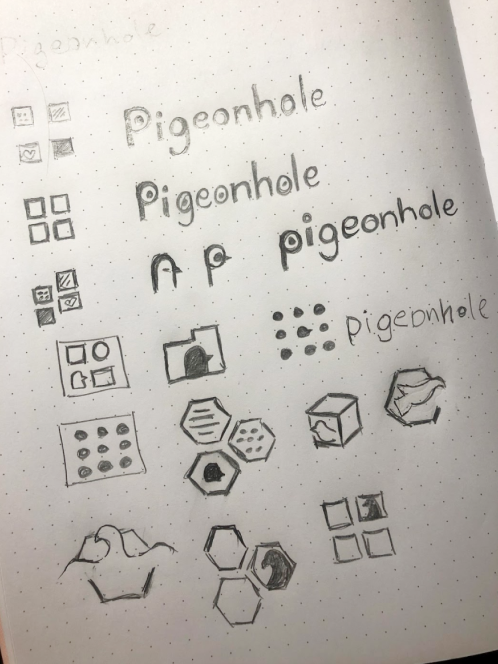 Pigeonhole
Pigeonhole
Pigeonhole
P pigeonhole
pigeonhole